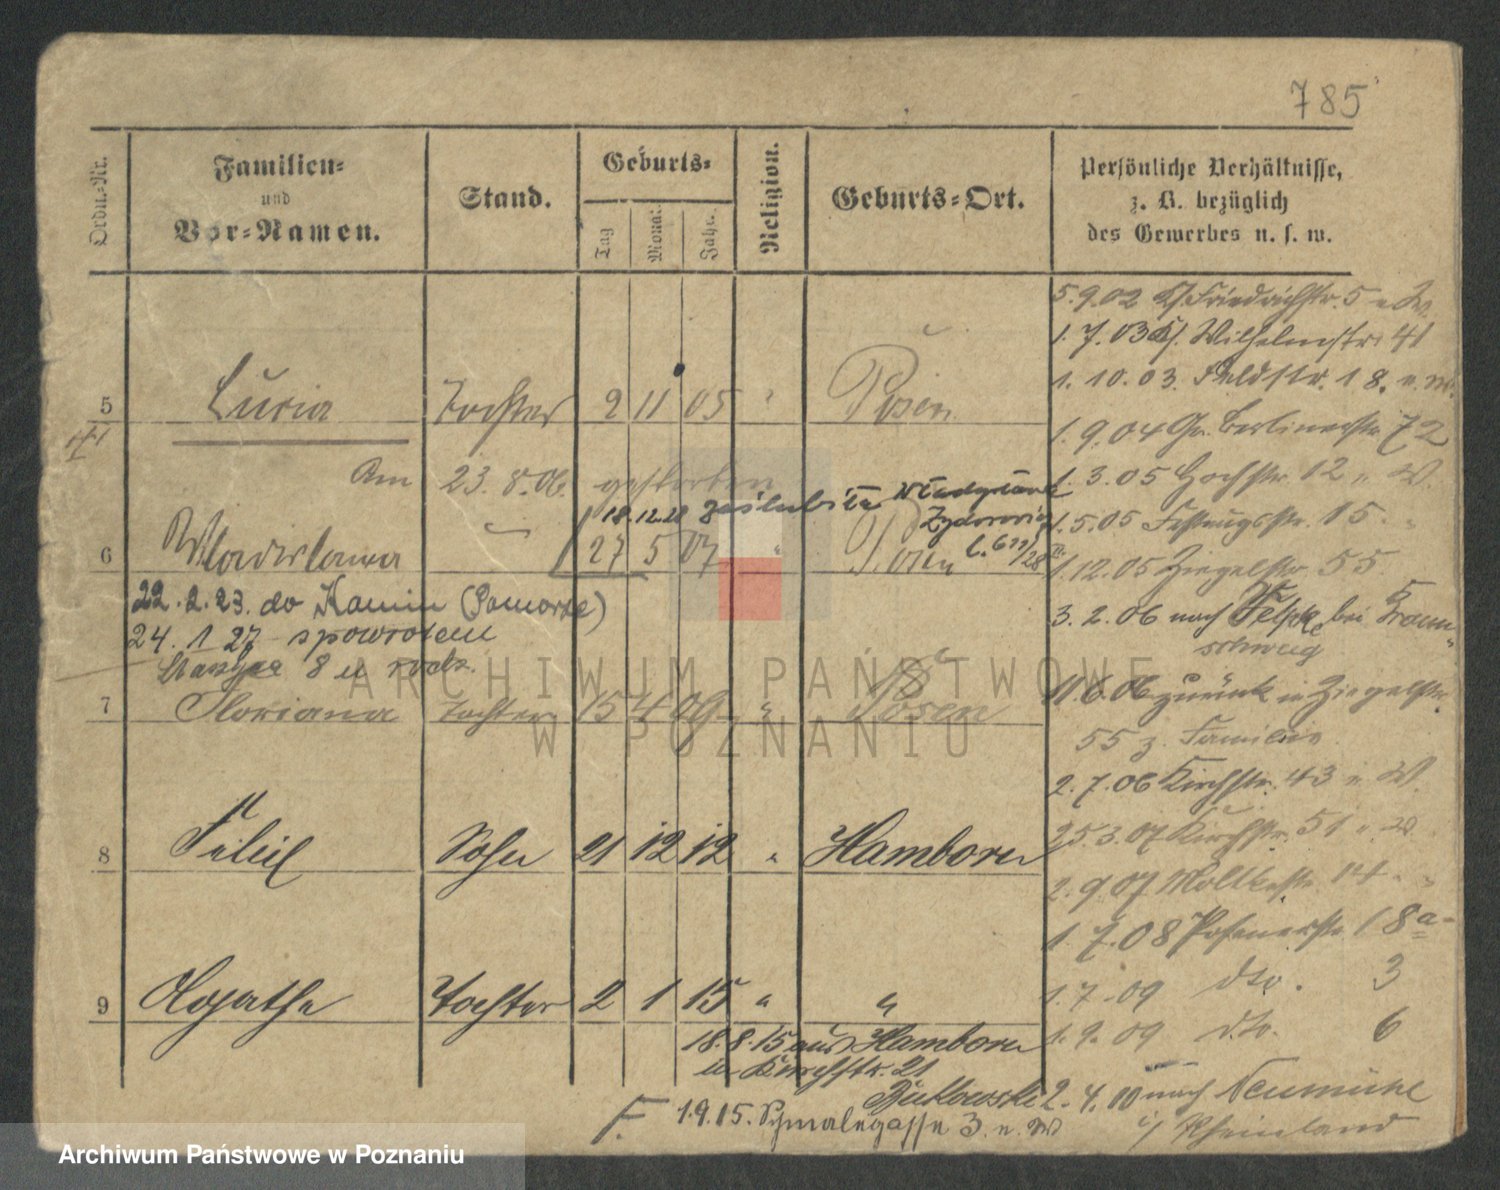 785
Ordn.-Nr.
Familien-
und
Vor-Namen.
Stand.
Geburts-
Tag
Monat.
Jahr.
Religion.
Geburts-Ort.
Persönliche Verhältnisse,
z. B. bezüglich
des Gewerbes u. s. w.
5 Lucia Tochter 2 11 05 " Posen
Am 23. 8. 06. gestorben
18.12.28 zaślubiła Władysława
6 Wladislawa 27 5 07 " Posen
22. 2. 23. do Kamin (Pomorze)
24. 1 27 spowrotem
8 u
7 Floriana Tochter 15 4 09 " Posen
8 Sohn 21 12 12 " Hamborn
9 Agathe Tochter 2 1 15 " "
18. 8. 15 aus Hamborn
Kirchstr. 21
F. 1.9.15. Schmalegasse 3. n. W
5. 9. 02 Friedrichstr. 5 n W.
1. 7. 03 Wilhelmstr. 41
1. 10. 03. Feldstr. 18. n. W.
1. 9. 04 Gr. Berlinerstr. 72
1. 3. 05 Hochstr. 12 " W.
1. 5. 05 Festungsstr. 15. "
1. 12. 05 Ziegelstr. 55
3. 2. 06 nach bei Braun-
schweig
11. 6. 06 zurück n Ziegelstr.
55 z. Familie
2. 7. 06 Kirchstr. 43 n W.
25. 3. 07 Kirchstr. 51 " W.
2. 9. 07 Moltkestr. 14 " "
1. 7. 08 Posenerstr. 18a
1. 7. 09 dto. 3
1. 9. 09 dto. 6
2. 4. 10 nach Neumühl
i/ Rheinland
ARCHIWUM PAŃSTWOWE
W POZNANIU
Archiwum Państwowe w Poznaniu